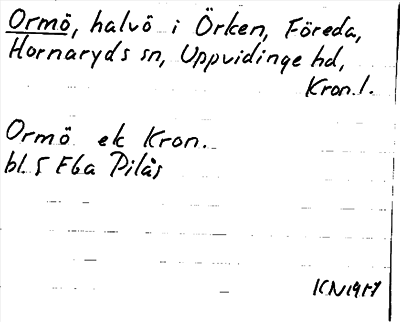 Ormö, halvö i Örken, Föreda,
Hornaryds sn, Uppvidinge hd,
Kron. l.
Ormö ek Kron.
bl. 5 F6a Pilås